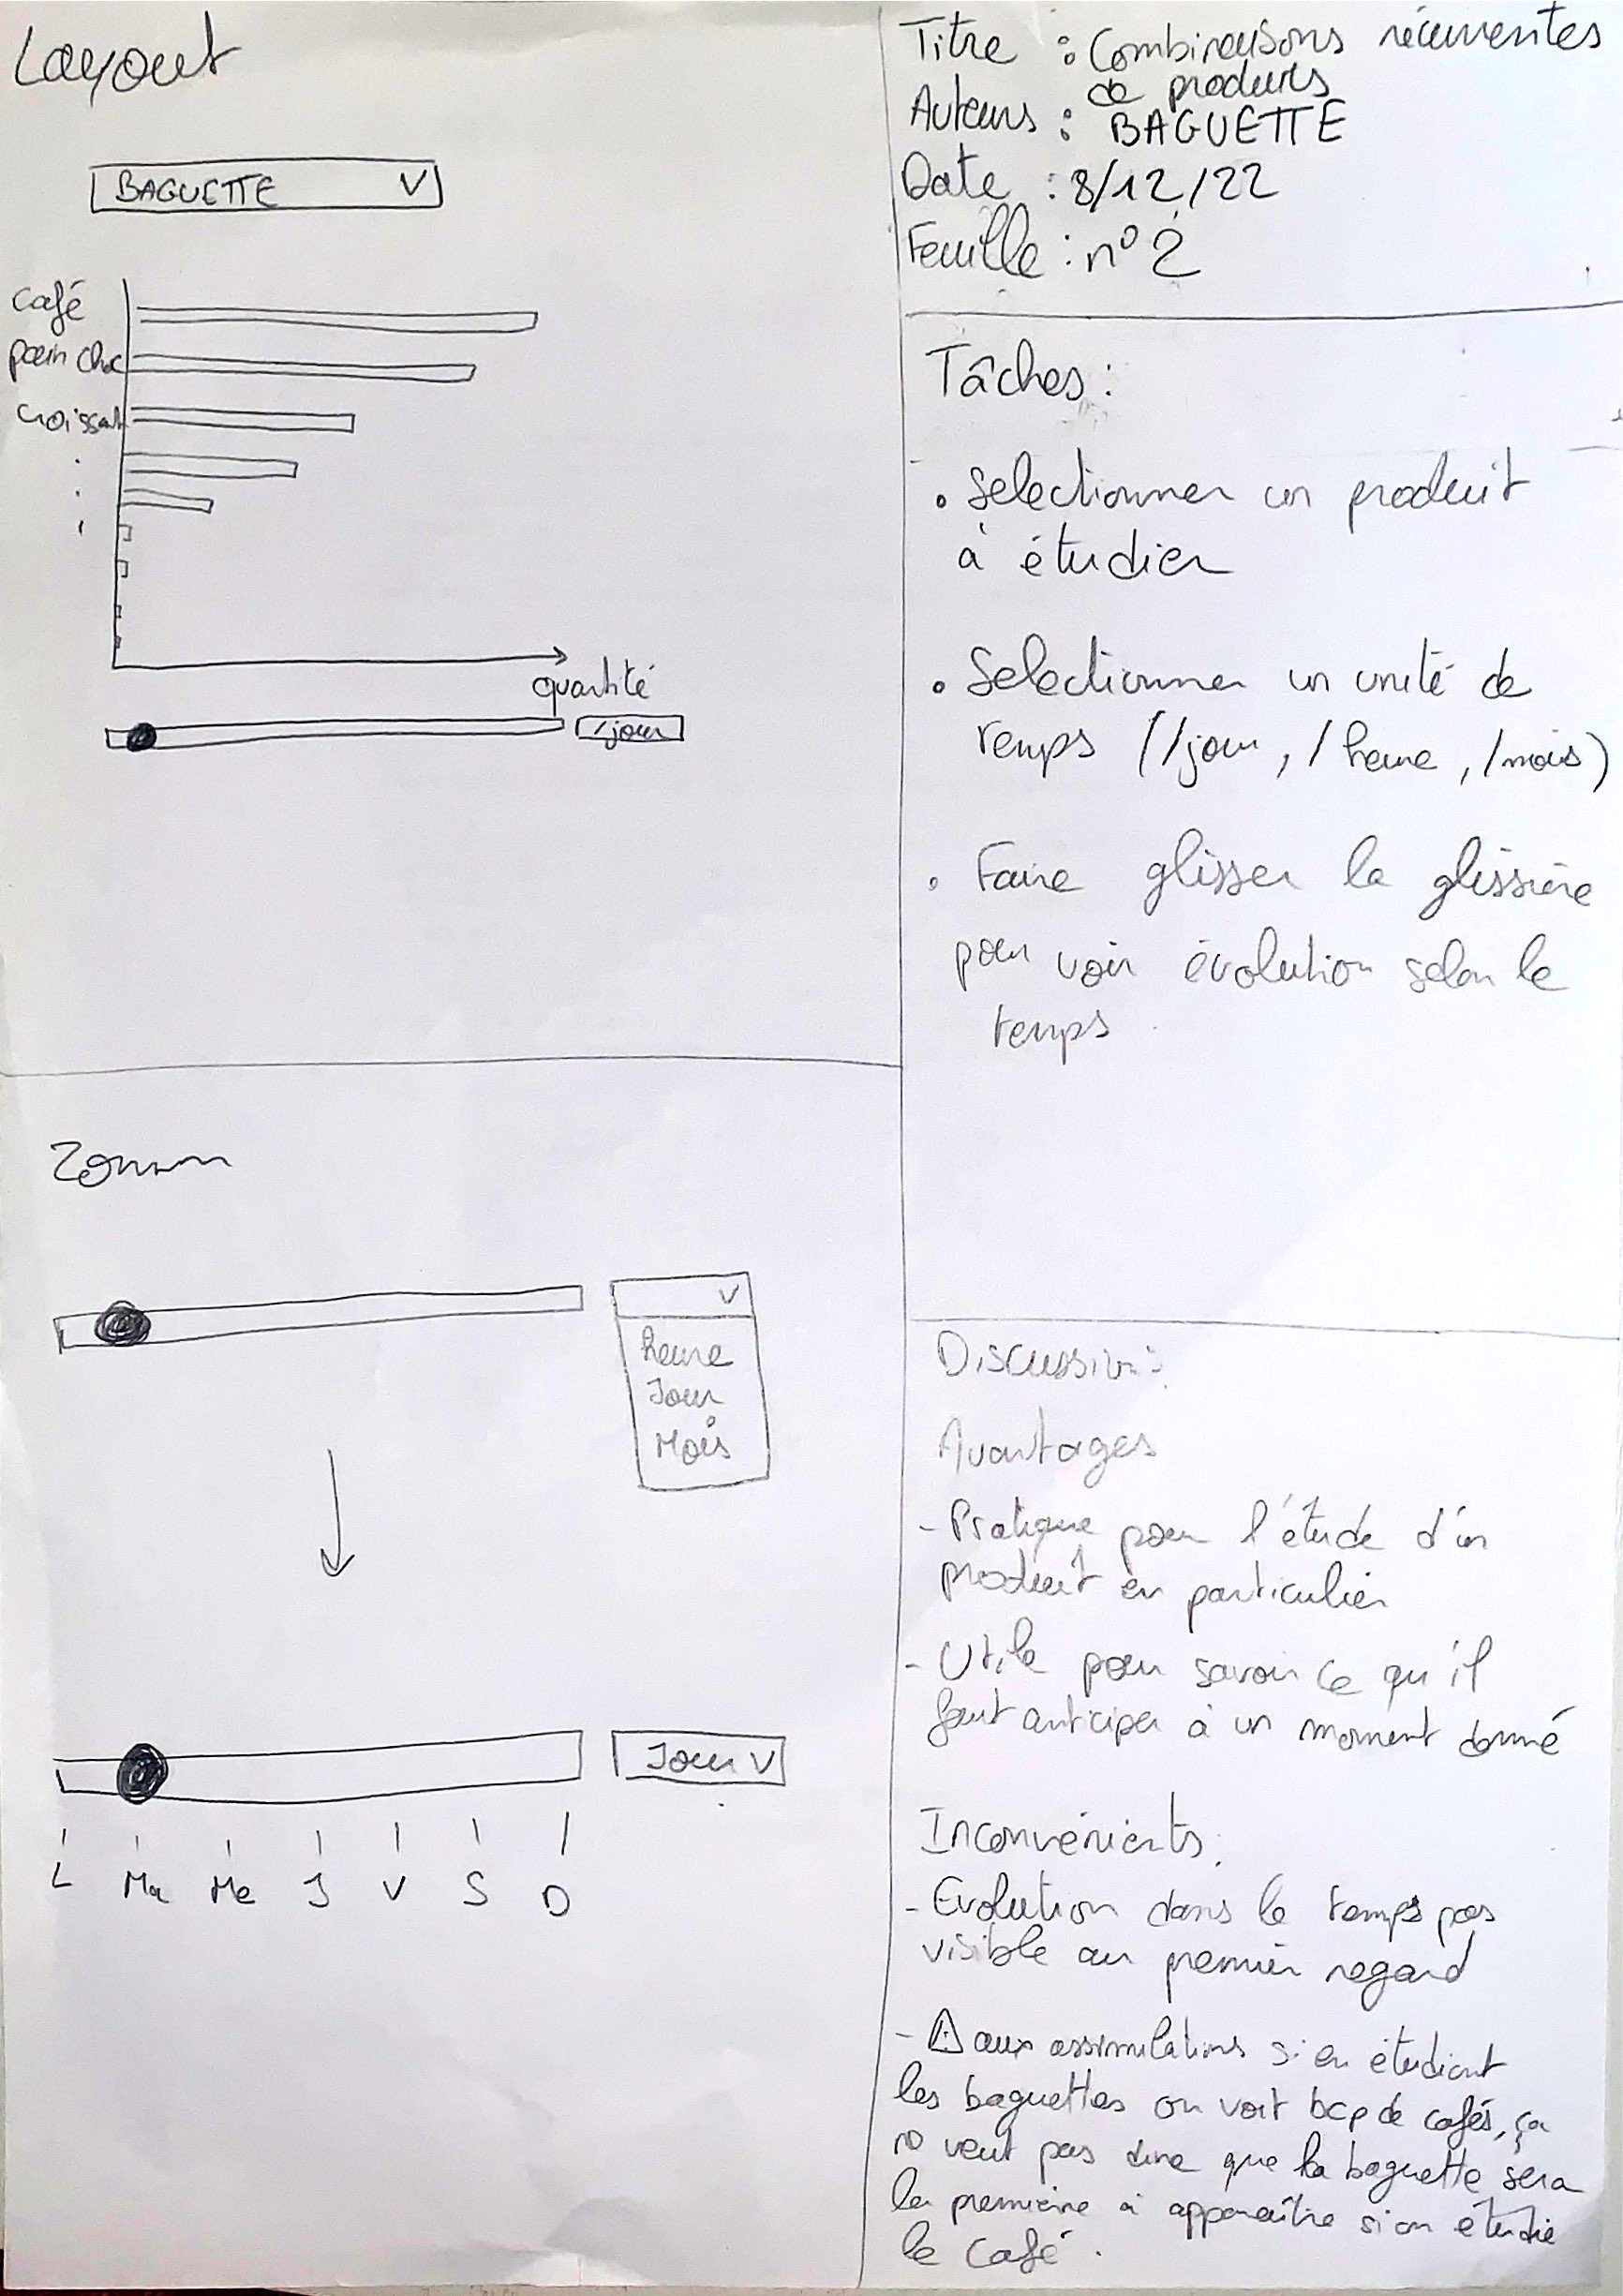 Layout
BAGUETTE V
café
pain choc
croissant
quantité
/jour
Titre : Combinaisons récurrentes
de produits
Auteurs : BAGUETTE
Date : 8/12/22
Feuille : n° 2
Tâches :
• Selectionner un produit
à étudier
• Selectionner un unité de
temps (/jour, /heure, /mois)
• Faire glisser la glissière
pour voir évolution selon le
temps.
Zoom
V
heure
Jour
Mois
Jour V
L Ma Me J V S D
Discussion :
Avantages
- Pratique pour l'étude d'un
produit en particulier
- Utile pour savoir ce qu'il
faut anticiper à un moment donné
Inconvénients :
- Evolution dans le temps pas
visible au premier regard
- ⚠ aux assimilations si en étudiant
les baguettes on voit bcp de cafés, ça
veut pas dire que la baguette sera
la première à apparaître si on étudie
le café.